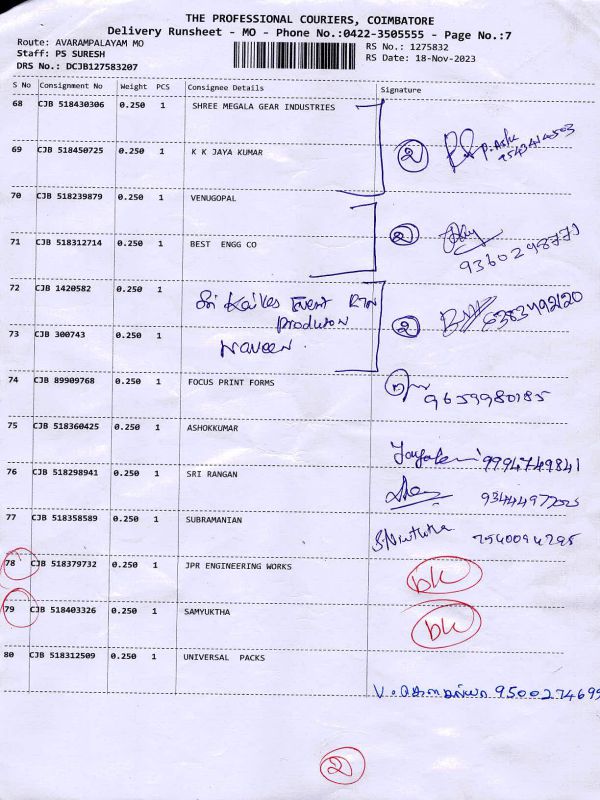 THE PROFESSIONAL COURIERS, COIMBATORE
Delivery Runsheet - MO - Phone No.:0422-3505555 - Page No.:7
Route: AVARAMPALAYAM MO
RS No.: 1275832
Staff: PS SURESH
RS Date: 18-Nov-2023
DRS No.: DCJB127583207
S No Consignment No Weight PCS Consignee Details Signature
68 CJB 518430306 0.250 1 SHREE MEGALA GEAR INDUSTRIES
69 CJB 518450725 0.250 1 K K JAYA KUMAR 2
70 CJB 518239879 0.250 1 VENUGOPAL
71 CJB 518312714 0.250 1 BEST ENGG CO 2
72 CJB 1420582 0.250 1 Sri Kaikes Event
Produton
73 CJB 300743 0.250 1 Naveen. 2
74 CJB 89909768 0.250 1 FOCUS PRINT FORMS 9659980185
75 CJB 518360425 0.250 1 ASHOKKUMAR 9994749841
76 CJB 518298941 0.250 1 SRI RANGAN
77 CJB 518358589 0.250 1 SUBRAMANIAN
78 CJB 518379732 0.250 1 JPR ENGINEERING WORKS bk
79 CJB 518403326 0.250 1 SAMYUKTHA bk
80 CJB 518312509 0.250 1 UNIVERSAL PACKS
9500274699
2